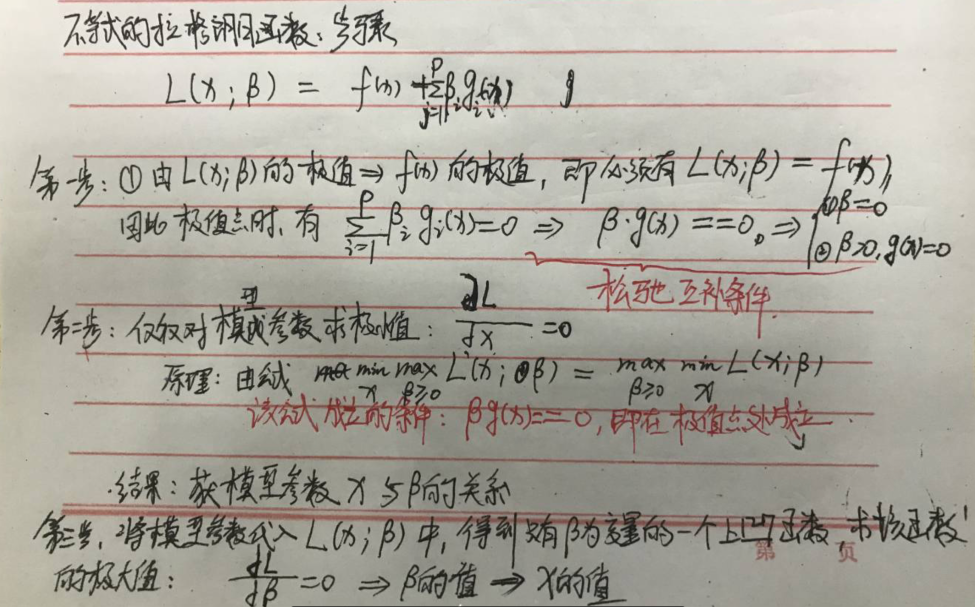 不等式的拉格朗日函数：步骤
L(x;β) = f(x) + Σ_{i=1}^{p} β_i g_i(x)
第一步：① 由L(x;β)的极值 ⇒ f(x)的极值，即必须有L(x;β) = f(x),
因此极值点时，有 Σ_{i=1}^{p} β_i g_i(x)=0 ⇒ β·g(x)==0。⇒ { ①β=0 ②β>0, g(x)=0
松弛互补条件.
第二步：仅仅对模型参数求极小值：∂L/∂x =0
原理：由公式 min_x max_{β≥0} L(x;β) = max_{β≥0} min_x L(x;β)
该公式成立的条件：βg(x)==0, 即在极值点处成立
·结果：获模型参数x与β的关系
第三步，将模型参数代入L(x;β)中，得到只有β为变量的一个上凹函数，求该函数
的极大值：dL/dβ =0 ⇒ β的值 → x的值
第 页